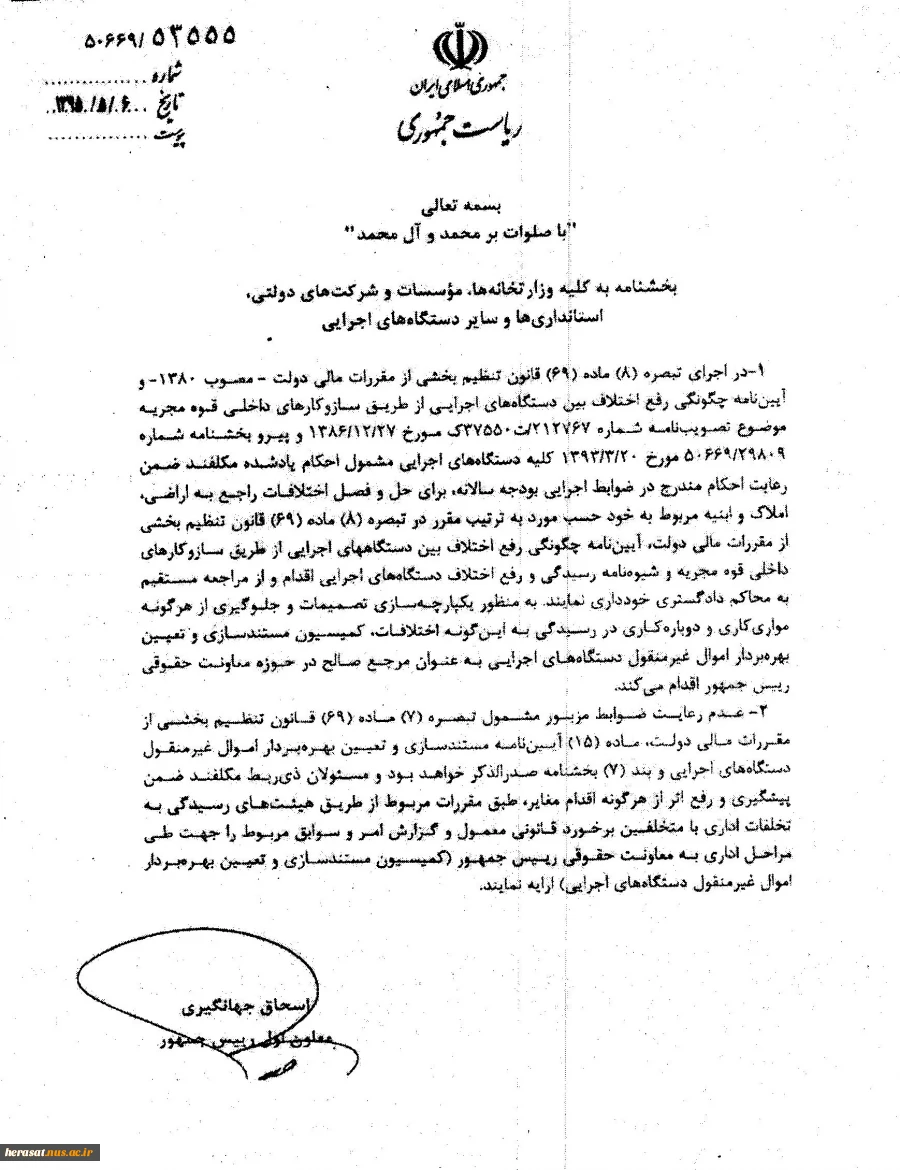 ۵۰۶۶۹/۵۳۵۵۵
شماره
تاریخ ۱۳۹۵/۵/۰۶
پیوست
جمهوری اسلامی ایران
ریاست جمهوری
بسمه تعالی
"با صلوات بر محمد و آل محمد"
بخشنامه به کلیه وزارتخانه‌ها، مؤسسات و شرکت‌های دولتی،
استانداری‌ها و سایر دستگاه‌های اجرایی
۱-در اجرای تبصره (۸) ماده (۶۹) قانون تنظیم بخشی از مقررات مالی دولت - مصوب ۱۳۸۰- و
آیین‌نامه چگونگی رفع اختلاف بین دستگاه‌های اجرایی از طریق سازوکارهای داخلی قوه مجریه
موضوع تصویب‌نامه شماره ۲۱۲۷۶۷/ت۳۷۵۵۰ک مورخ ۱۳۸۶/۱۲/۲۷ و پیرو بخشنامه شماره
۵۰۶۶۹/۲۹۸۰۹ مورخ ۱۳۹۳/۳/۲۰ کلیه دستگاه‌های اجرایی مشمول احکام یادشده مکلفند ضمن
رعایت احکام مندرج در ضوابط اجرایی بودجه سالانه، برای حل و فصل اختلافات راجع به اراضی،
املاک و ابنیه مربوط به خود حسب مورد به ترتیب مقرر در تبصره (۸) ماده (۶۹) قانون تنظیم بخشی
از مقررات مالی دولت، آیین‌نامه چگونگی رفع اختلاف بین دستگاههای اجرایی از طریق سازوکارهای
داخلی قوه مجریه و شیوه‌نامه رسیدگی و رفع اختلاف دستگاه‌های اجرایی اقدام و از مراجعه مستقیم
به محاکم دادگستری خودداری نمایند. به منظور یکپارچه‌سازی تصمیمات و جلوگیری از هرگونه
موازی‌کاری و دوباره‌کاری در رسیدگی به این‌گونه اختلافات، کمیسیون مستندسازی و تعیین
بهره‌بردار اموال غیرمنقول دستگاه‌های اجرایی به عنوان مرجع صالح در حوزه معاونت حقوقی
رییس جمهور اقدام می‌کند.
۲- عدم رعایت ضوابط مزبور مشمول تبصره (۷) ماده (۶۹) قانون تنظیم بخشی از
مقررات مالی دولت، ماده (۱۵) آیین‌نامه مستندسازی و تعیین بهره‌بردار اموال غیرمنقول
دستگاه‌های اجرایی و بند (۷) بخشنامه صدرالذکر خواهد بود و مسئولان ذی‌ربط مکلفند ضمن
پیشگیری و رفع اثر از هرگونه اقدام مغایر، طبق مقررات مربوط از طریق هیئت‌های رسیدگی به
تخلفات اداری با متخلفین برخورد قانونی معمول و گزارش امر و سوابق مربوط را جهت طی
مراحل اداری به معاونت حقوقی رییس جمهور (کمیسیون مستندسازی و تعیین بهره‌بردار
اموال غیرمنقول دستگاه‌های اجرایی) ارایه نمایند.
اسحاق جهانگیری
معاون اول رییس جمهور
herasat.nus.ac.ir